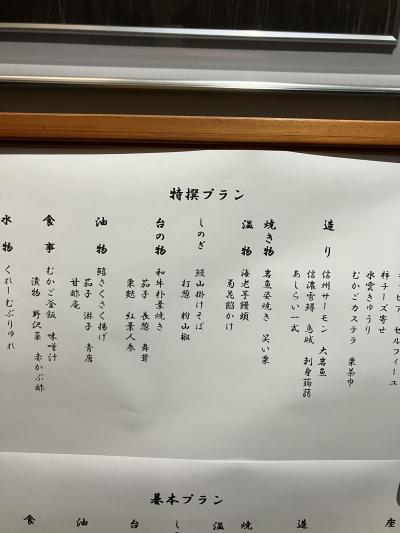 特撰プラン
キャビア セルフィーユ
柿チーズ寄せ
水雲きゅうり
むかごカステラ 栗茶巾
造り
信州サーモン 大岩魚
信濃雪鱒 烏賊 刺身蒟蒻
あしらい一式
焼き物 岩魚姿焼き 笑い栗
温物 海老芋饅頭
菊花餡かけ
しのぎ 鰻山掛けそば
打葱 粉山椒
台の物 和牛朴葉焼き
茄子 長葱 舞茸
粟麩 紅葉人参
油物 鯖さくさく揚げ
茄子 淋子 青唐
甘酢庵
食事 むかご釜飯 味噌汁
漬物 野沢菜 赤かぶ酢
水物 くれーむぶりゅれ
基本プラン
座
造
焼
温
し
台
油
食